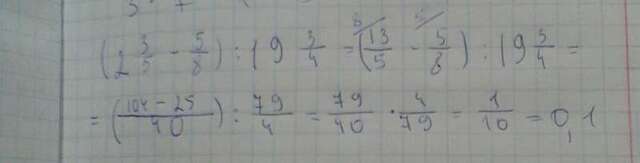 (2 3/5 - 5/8) : 19 3/4 = (13/5 - 5/8) : 19 3/4 =
= (104 - 25/40) : 79/4 = 79/40 · 4/79 = 1/10 = 0,1